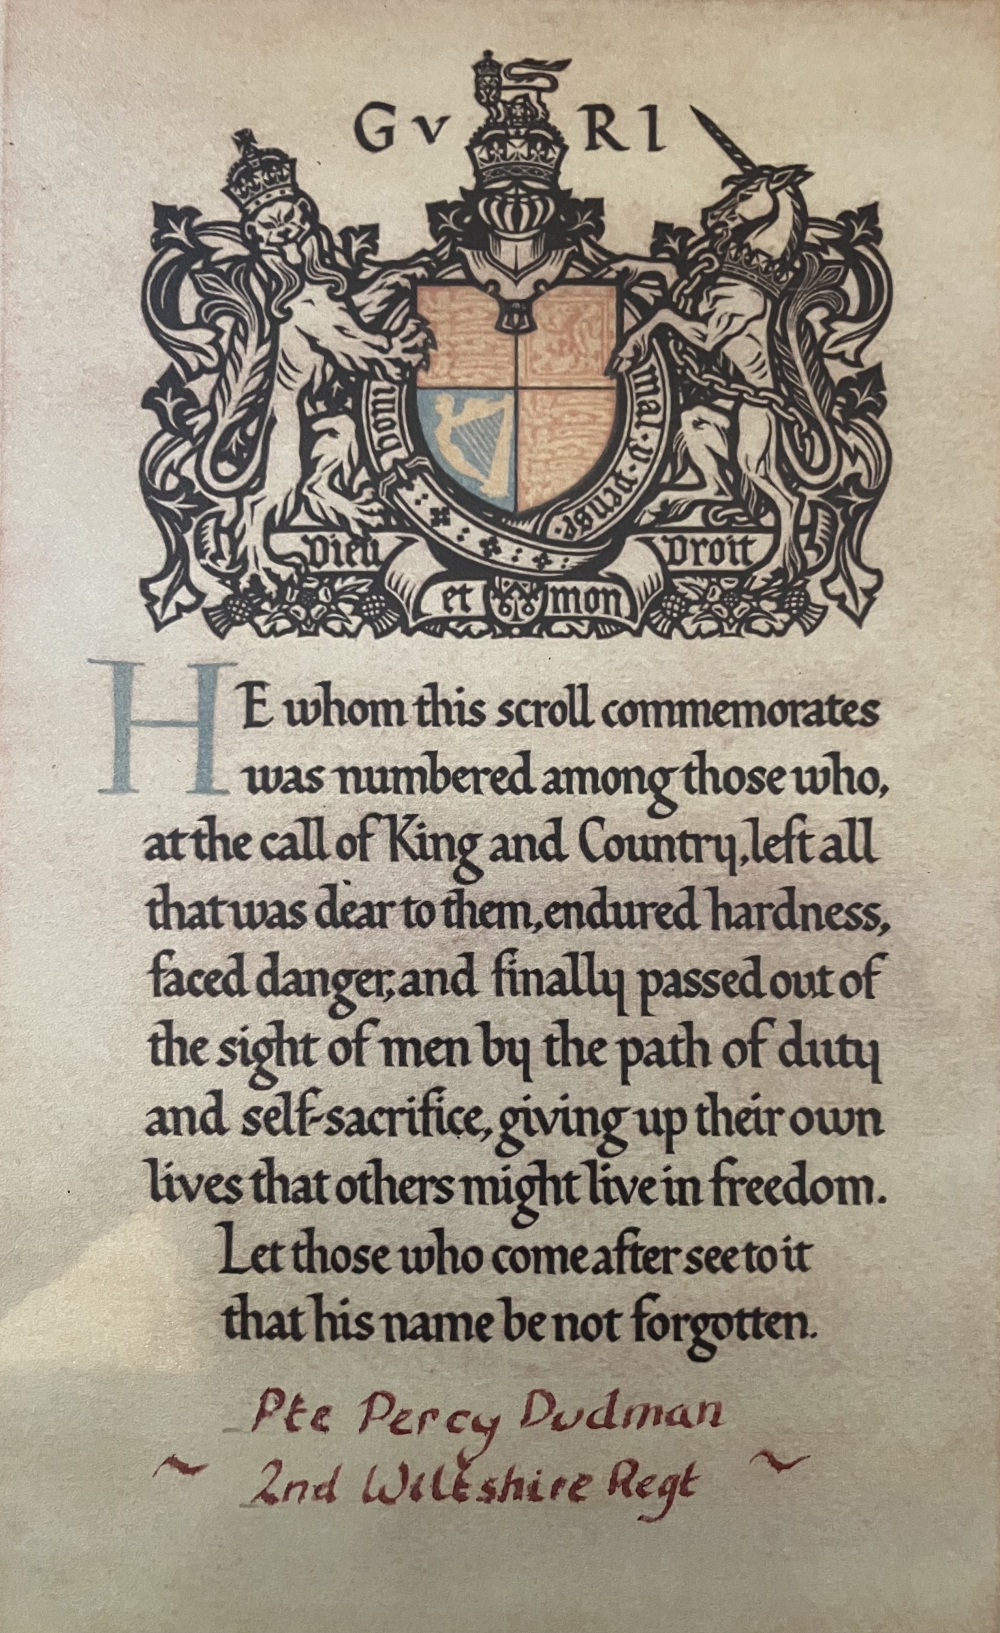 G V R I
honi mal · y · pense ·
Dieu et mon Droit
HE whom this scroll commemorates
was numbered among those who,
at the call of King and Country, left all
that was dear to them, endured hardness,
faced danger, and finally passed out of
the sight of men by the path of duty
and self-sacrifice, giving up their own
lives that others might live in freedom.
Let those who come after see to it
that his name be not forgotten.
Pte Percy Dudman
~ 2nd Wiltshire Regt ~